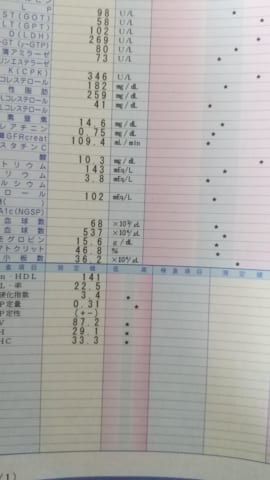 L P
ST(GOT) 98 U/L
LT(GPT) 58 U/L
D(LDH) 102 U/L
-GT(γ-GTP) 269 U/L
アミラーゼ 80 U/L
リンエステラーゼ 73 U/L
K(CPK)
コレステロール 346 U/L
性脂肪 182 mg/dL
Lコレステロール 259 mg/dL
Lコレステロール 41 mg/dL
素窒素
レアチニン 14.6 mg/dL
GFRcreat 0.75 mg/dL
スタチンC 109.4 mL/min
酸
トリウム 10.3 mg/dL
リウム 143 mEq/L
ルシウム 3.8 mEq/L
ロール 102 mEq/L
A1c(NGSP)
血球数 68
血球数 537
モグロビン 15.6 g/dL
トクリット 46.8 %
小板数 36.2
査項目 測定値 低 高 検査項目 測定値
n-HDL 141
L・率 22.5
硬化指数 3.4
P定量 0.31
P定性 (+-)
V 87.2
H 29.1
HC 33.3
/1)